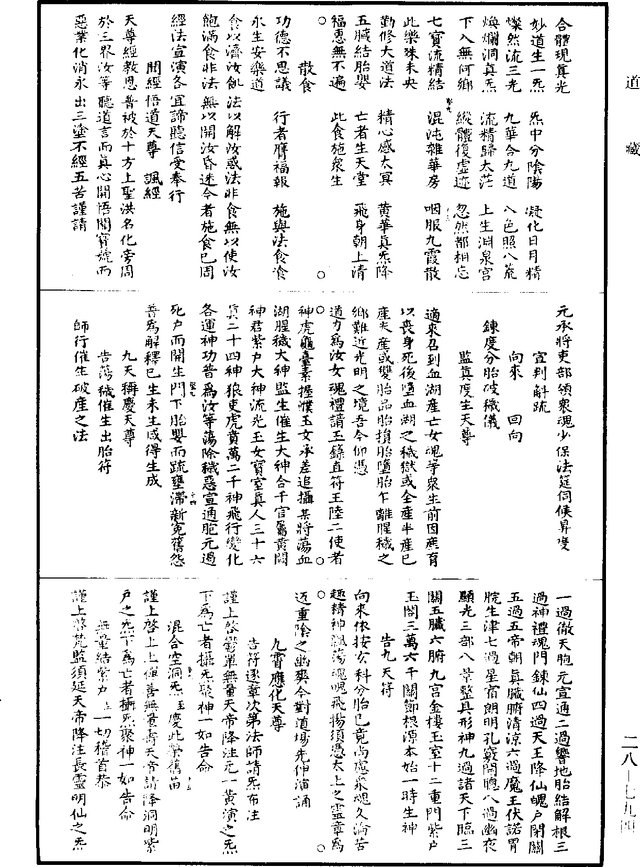 道藏
合體現真光
妙道生一炁　炁中分陰陽　凝化日月精
燦然流三光　九華合九道　八色照八荒
煥爛洞真炁　流精歸太茫　上生淵泉宮
下入無何鄉　縱體復虛迹　忽然都相忘
七寶流精結　混沌雜華房　咽服九霞散
此樂殊未央
勤修大道法　精心感太冥　黃華真炁降
五臟結胎嬰　亡者生天堂　飛身朝上清
福惠無不遍　此食施眾生
散食
功德不思議　行者膺福報　施與法食飡
永生安樂道
食以濟汝飢法以解汝惑法非食無以使汝
飽滿食非法無以開汝昏迷今者施食已周
經法宣演各宜諦聽信受奉行
聞經悟道天尊　諷經
天尊經教恩普被於十方上聖洪名化旁周
於三界汝等聽道言而真心開悟聞寶號而
惡業化消永出三塗不經五苦謹請
元承將吏部領眾魂少保法筵伺候昇度
宣判斛疏
向來　回向
鍊度分胎破穢儀
監真度生天尊
適來召到血湖產亡女魂等眾生前因產育
以喪身死後墮血湖之穢獄或全產半產已
產未產或雙胎品胎損胎墮胎乍離腥穢之
鄉難近光明之境吾今仰憑
道力為汝女魂禮請玉籙直符王陸二使者
神虎龜臺素握懷玉女承差追攝某將蕩血
湖腥穢大神監生催生大神合千官屬黃闕
神君紫戶大神流光玉女寶室真人三十六
真二十四神狼吏虎賁萬二千神飛行變化
各運神功普為汝等蕩除穢惡宣通胞元過
死戶而開生門下胎嬰而疏壅滯新冤舊怨
普為解釋已生未生咸得生成
九天稱慶天尊
告蕩穢催生出胎符
師行催生破產之法
一過徹天胞元宣通二過響地胎結解根三
過神禮魂門鍊仙四過天王降仙魄戶閉關
五過五帝朝真臟腑清涼六過魔王伏諾胃
脘生津七過星宿朗明孔竅開聰八過幽夜
顯光三部八景整具形神九過諸天下臨三
關五臟六腑九宮金樓玉室十二重門紫戶
玉閤三萬六千關節根源本始一時生神
告九天符
向來依按玄科分胎已竟尚慮眾魂久淪苦
趣精神飄蕩魂魄飛揚須憑太上之靈章為
返重陰之幽爽今對道場先伸演誦
九霄應化天尊
告符逐章次第法師請炁布注
謹上啓鬱單無量天帝降注元一黃演之炁
下為亡者攝炁聚神一如告命
混合空洞炁至慶此榮舊苗
謹上啓上上禪善無量壽天帝請降洞明紫
戶之炁下為亡者攝炁聚神一如告命
無量結紫戶至一切稽首恭
謹上啓梵監須延天帝降注長靈明仙之炁
二八—七九四